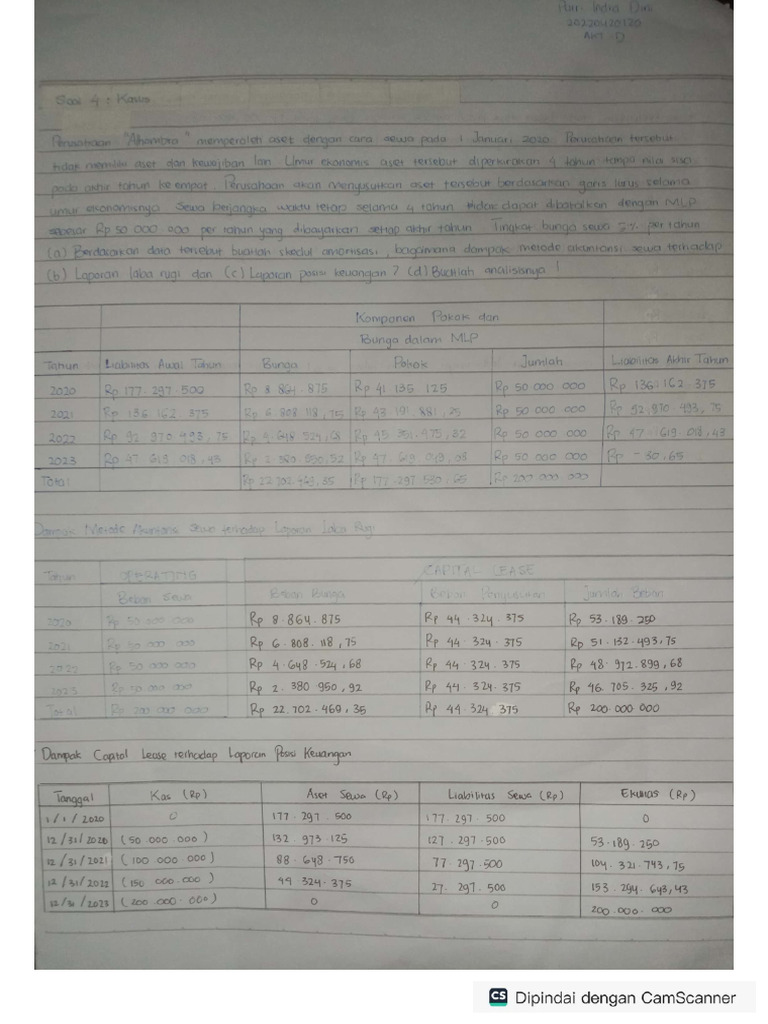 Putri Indra Dwi
20220420120
AKT - D
Soal 4 : Kasus
Perusahaan "Alhambra" memperoleh aset dengan cara sewa pada 1 Januari 2020. Perusahaan tersebut
tidak memiliki aset dan kewajiban lain. Umur ekonomis aset tersebut diperkirakan 4 tahun tanpa nilai sisa
pada akhir tahun ke empat. Perusahaan akan menyusutkan aset tersebut berdasarkan garis lurus selama
umur ekonomisnya. Sewa berjangka waktu tetap selama 4 tahun tidak dapat dibatalkan dengan MLP
sebesar Rp 50 000 000 per tahun yang dibayarkan setiap akhir tahun. Tingkat bunga sewa 5% per tahun
(a) Berdasarkan data tersebut buatlah skedul amortisasi, bagaimana dampak metode akuntansi sewa terhadap
(b) Laporan laba rugi dan (c) Laporan posisi keuangan ? (d) Buatlah analisisnya !
Komponen Pokok dan
Bunga dalam MLP
Tahun Liabilitas Awal Tahun Bunga Pokok Jumlah Liabilitas Akhir Tahun
2020 Rp 177.297.500 Rp 8.864.875 Rp 41 135 125 Rp 50 000 000 Rp 136.162.375
2021 Rp 136 162.375 Rp 6.808.118,75 Rp 43 191.881,25 Rp 50 000 000 Rp 92.970.493,75
2022 Rp 92 970 493,75 Rp 4.648.524,68 Rp 45 351.475,32 Rp 50 000 000 Rp 47.619.018,43
2023 Rp 47 619 018,43 Rp 2 380 950,52 Rp 47.619.049,08 Rp 50 000 000 Rp - 30,65
Total Rp 22 702.469,35 Rp 177.297 530,65 Rp 200 000 000
Dampak Metode Akuntansi Sewa terhadap Laporan Laba Rugi
Tahun OPERATING CAPITAL LEASE
Beban Sewa Beban Bunga Beban Penyusutan Jumlah Beban
2020 Rp 50.000 000 Rp 8.864.875 Rp 44.324.375 Rp 53.189.250
2021 Rp 50 000 000 Rp 6.808.118,75 Rp 44.324.375 Rp 51.132.493,75
2022 Rp 50 000 000 Rp 4.648.524,68 Rp 44.324.375 Rp 48.972.899,68
2023 Rp 50 000 000 Rp 2.380.950,92 Rp 44.324.375 Rp 46.705.325,92
Total Rp 200 000 000 Rp 22.702.469,35 Rp 44.324 375 Rp 200.000.000
Dampak Capital Lease terhadap Laporan Posisi Keuangan
Tanggal Kas (Rp) Aset Sewa (Rp) Liabilitas Sewa (Rp) Ekuitas (Rp)
1/1/2020 0 177.297.500 177.297.500 0
12/31/2020 (50.000.000) 132.973.125 127.297.500 53.189.250
12/31/2021 (100 000 000) 88.648.750 77.297.500 104.321.743,75
12/31/2022 (150 000.000) 44 324.375 27.297.500 153.294.643,43
12/31/2023 (200.000.000) 0 0 200.000.000
CS Dipindai dengan CamScanner